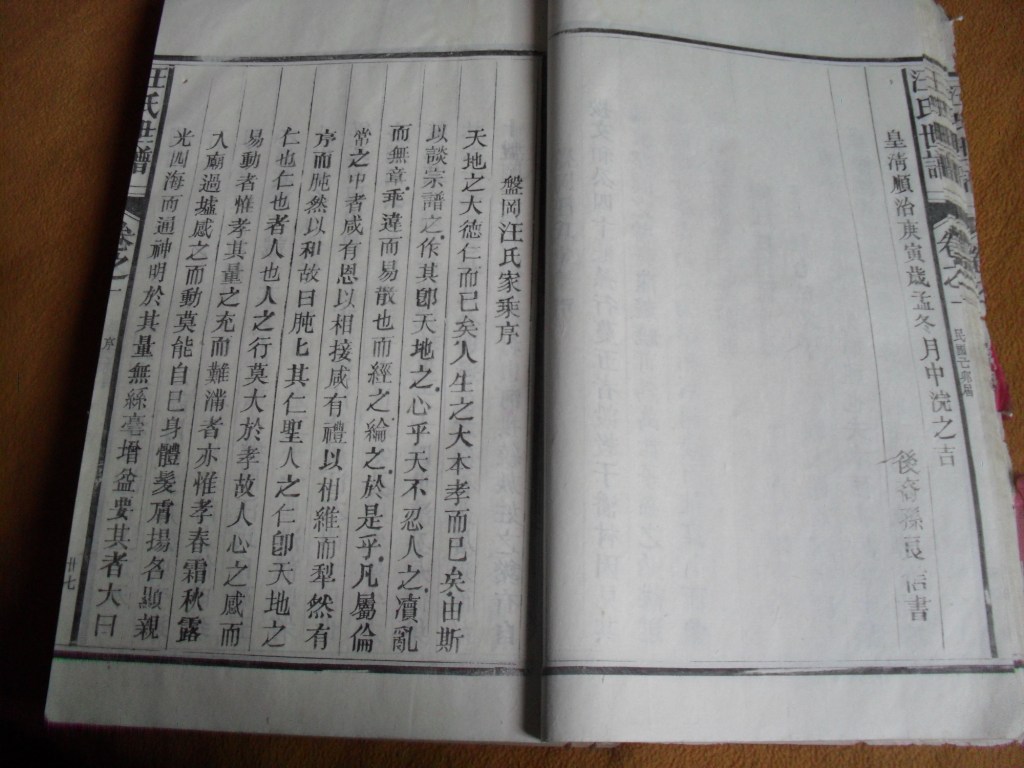 汪氏世譜
卷之一
民國己
皇清順治庚寅歲孟冬月中浣之吉
後裔孫長信書
盤岡汪氏家乘序
天地之大德仁而已矣人生之大本孝而已矣由斯
以談宗譜之作其卽天地之心乎天不忍人之瀆亂
而無章乖違而易散也而經之綸之於是乎凡屬倫
常之中者咸有恩以相接咸有禮以相維而犁然有
序而肫然以和故曰肫匕其仁聖人之仁卽天地之
仁也仁也者人也人之行莫大於孝故人心之感而
易動者惟孝其量之充而難滿者亦惟孝春霜秋露
入廟過墟感之而動莫能自已身體髮膚揚名顯親
光四海而通神明於其量無絲毫增益要其者大曰
汪氏世譜
卷之一
序
廿七